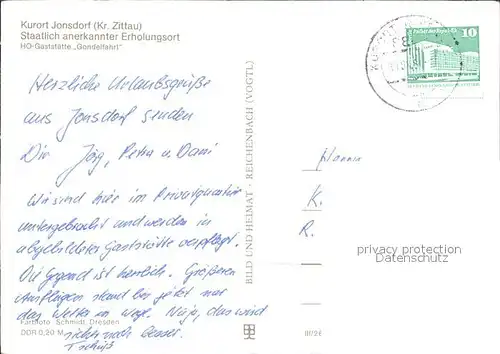 Kurort Jonsdorf (Kr. Zittau)
Staatlich anerkannter Erholungsort
HO-Gaststätte „Gondelfahrt"
Herzliche Urlaubsgrüße
aus Jonsdorf senden
Dir Jörg, Petra u. Dani
Wir sind hier im Privatquartier
untergebracht und werden in
abgebildeter Gaststätte verpflegt.
Die Gegend ist herrlich. Größeren
Ausflügen stand bis jetzt nur
das Wetter im Wege. Naja, das wird
sicher noch besser.
Tschüß
Farbfoto: Schmidt, Dresden
DDR 0,20 M
BILD UND HEIMAT · REICHENBACH (VOGTL)
III/26
10
K.
R.
privacy protection
Datenschutz